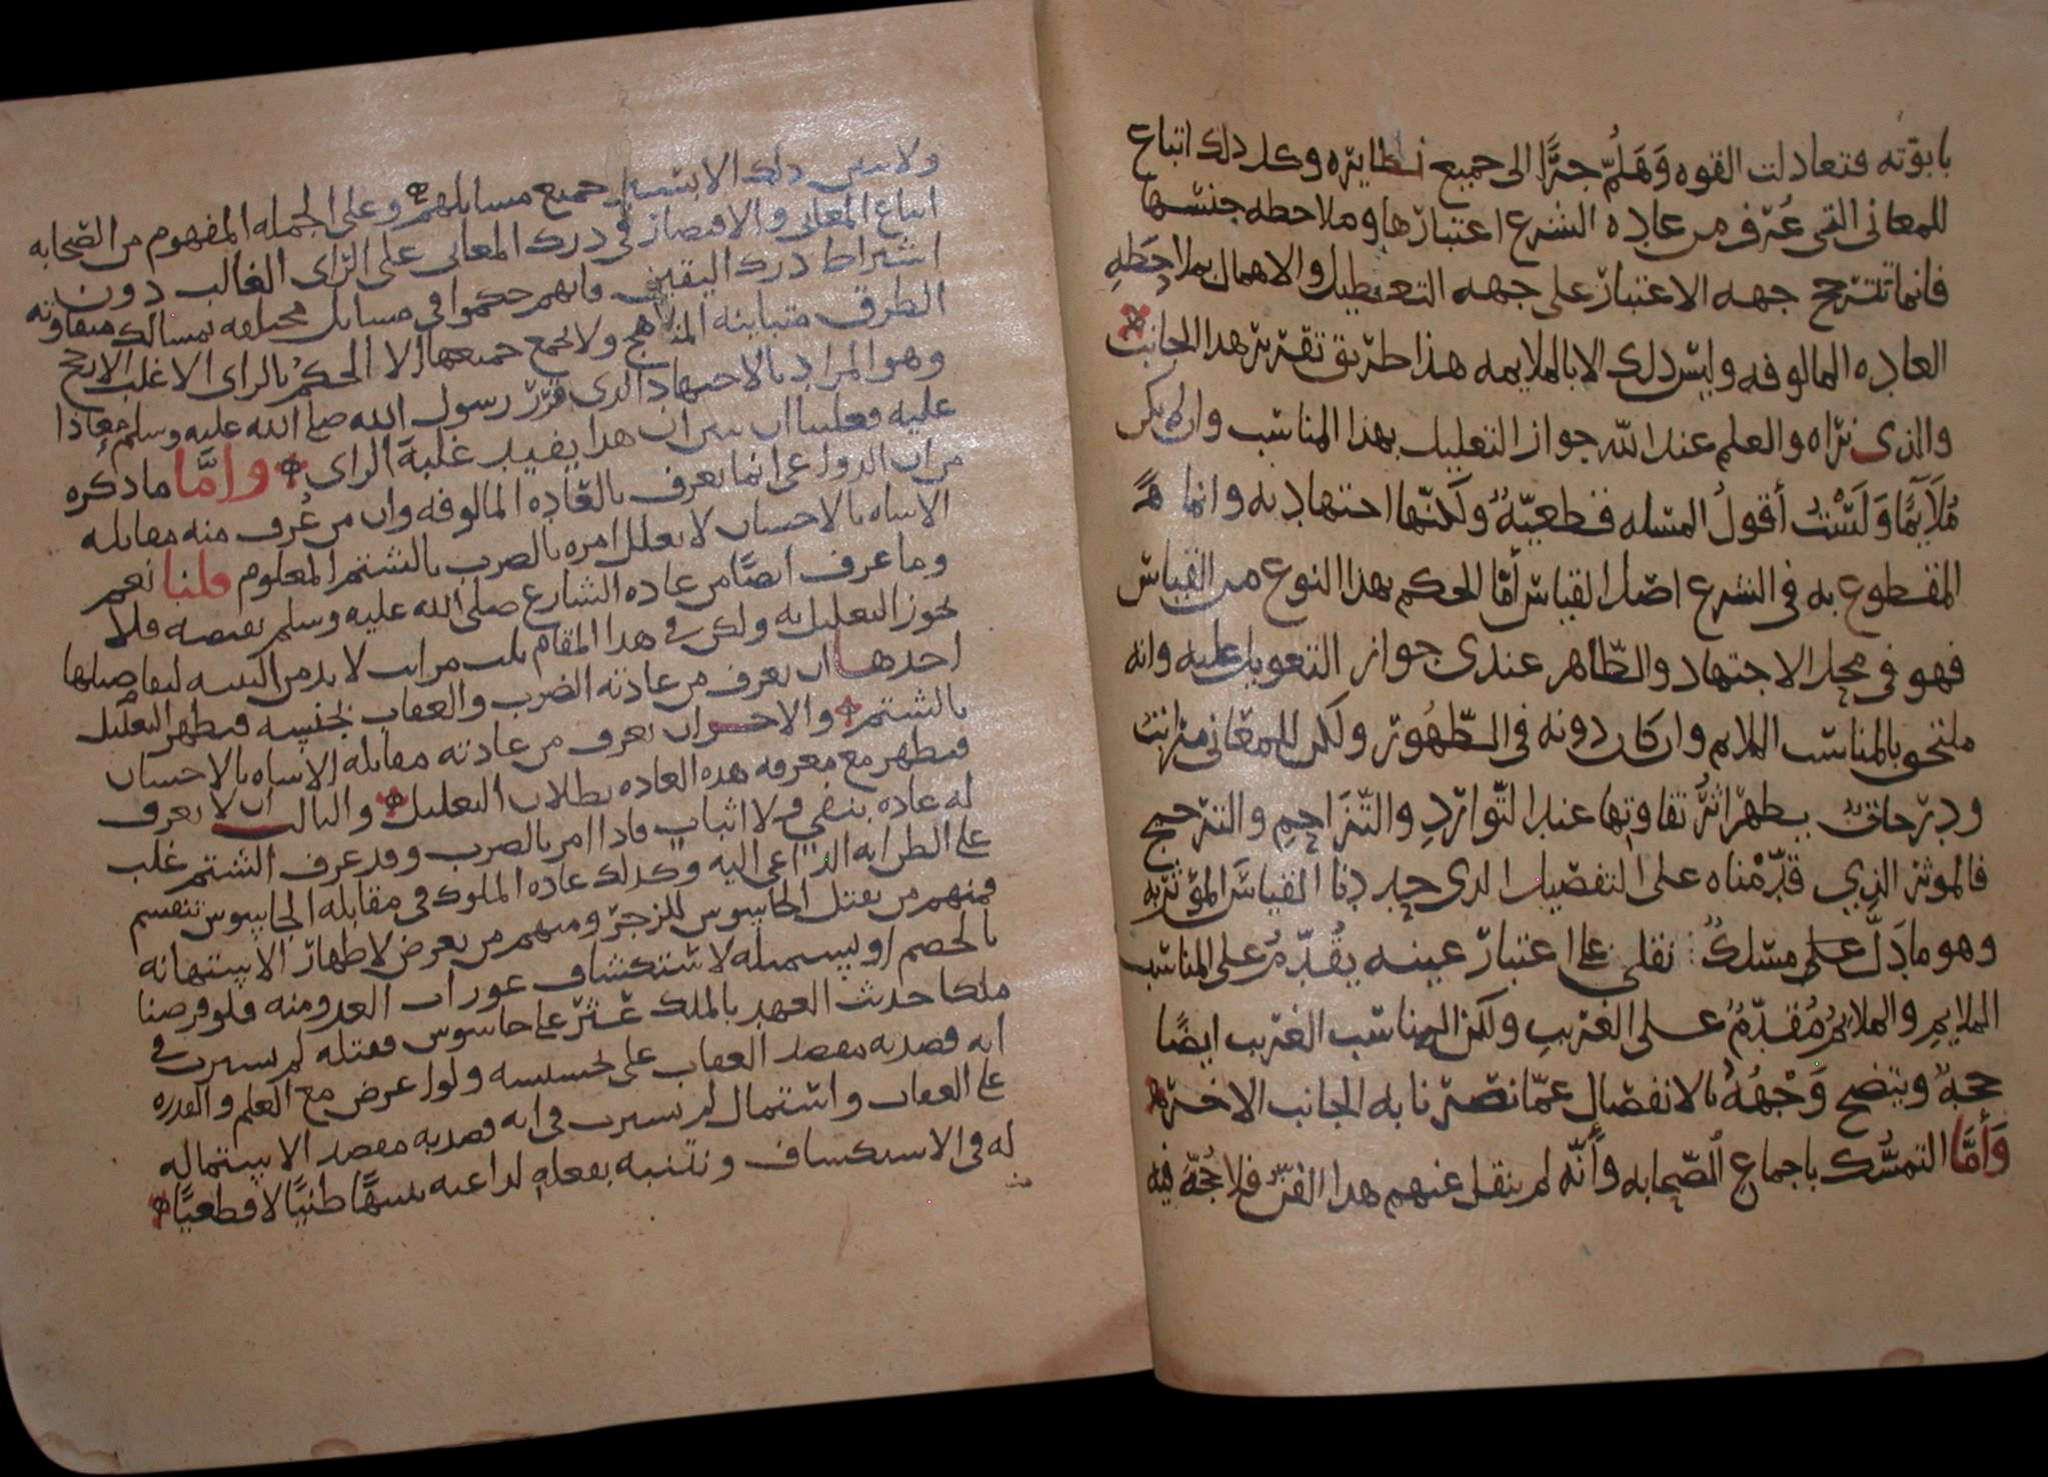 بابوته فتعادلت القوه وَهَلُمّ جرًّا الى جميع نظايره وكل ذلك اتباع
للمعانى التى عُرف من عاده الشرع اعتبارها وملاحظه جنسها
فانما تترجح جهه الاعتبار على جهه التعطيل والاهمال بملاحظه
العاده المالوفه وليس ذلك الا بالملايمه هذا طريق تقرير هذا الجانب
والذى نراه والعلم عند الله جواز التعليل بهذا المناسب وان لم يكن
مُلَايمًا وَلَسْتُ أقولُ المسله قطعيّةٌ ولَكنّها اجتهاديه وانما
المقطوع به فى الشرع اصل القياس أمّا الحكم بهذا النوع من القياس
فهو فى محل الاجتهاد والظاهر عندى جواز التعويل عليه وانه
ملتحق بالمناسب الملايم وان كان دونه فى الظهُور ولكن للمعانى مراتبُ
ودرجاتٌ يظهر اثرُ تفاوتها عند التّواردِ والتّزَاحمِ والترجيح
فالموثر الذي قدّمْناه على التفصيل الذى حددنا القياسَ المؤثر به
وهو مادَلّ على مسلكٌ نقلى على اعتبار عينه يُقدّمُ على المناسب
الملايمِ والملايمُ مُقدّمٌ على الغريبِ ولكن المناسب الغريب ايضًا
حجةٌ ويتضح وَجْهُهُ بالانفصال عمّا نصرنا به الجانب الاخر
وَأَمَّا التمسُّك باجماع الصّحابه وأنّه لم ينقل عنهم هذا الفنّ فلا حُجّة فيه
ولا يتبين ذلك الا بتتبع جميع مسايلهم وعلى الجمله المفهوم من الصّحابه
اتباع المعانى والاقتصار فى درك المعانى على الراى الغالب دون
اشتراط درك اليقين فانهم حكموا فى مسايل مختلفه بمسالك متفاوته
الطرق متباينه المناهج ولا يجمع جميعها الا الحكم بالراى الاغلب الارجح
وهو المراد بالاجتهاد الذى قرّر رسول الله صلى الله عليه وسلم معاذا
عليه فعلينا ان نبين ان هذا يفيد غلبةَ الراى وامَّا ما ذكره
من ان الدواعى انما يعرف بالعاده المالوفه وان من عُرف منه مقابله
الاساه بالاحسان لا يعلل امره بالضرب بالشتم المعلوم قلنا نعم
وما عرف ايضًا من عاده الشارع صلى الله عليه وسلم نقيضه فلا
يجوز التعليل به ولكن فى هذا المقام ثلث مراتب لا بد من التنبيه لتفاصيلها
احدها ان يعرف من عادته الضرب والعقاب بجنسِه فيظهر التعليل
بالشتم والاخرى ان يعرف من عادته مقابله الاساه بالاحسان
فيظهر مع معرفه هذه العاده بطلان التعليل والثالث ان لا يعرف
له عاده بنفي ولا اثبات فاذا امر بالضرب وقد عرف الشتم غلب
على الظن انه الداعى اليه وكذلك عاده الملوك فى مقابله الجاسوس تنقسم
فمنهم من يقتل الجاسوس للزجر ومنهم من يعرض لاظهار الاستهانه
بالخصم او يستميله لاستكشاف عورات العدو منه فلو فرضنا
ملكا حدث العهد بالملك عثر على جاسوس فقتله لم نسترب فى
انه قصد به مقصد العقاب على تجسسه ولو اعرض مع العلم والقدره
على العقاب واستمال لم نسترب فى انه قصد به مقصد الاستماله
له فى الاستكشاف ونتنبه بفعله لداعيه تنبهًا ظنيًا لا قطعيًا